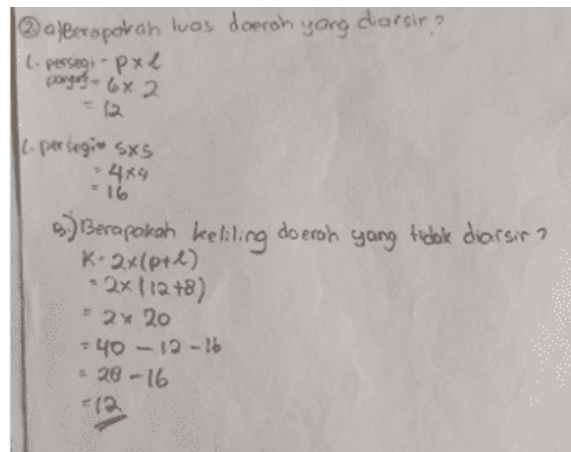 ② a) Berapakah luas daerah yang diarsir?
L. persegi = p x l
panjang = 6 x 2
= 12
L. persegi = s x s
= 4 x 4
= 16
B.) Berapakah keliling daerah yang tidak diarsir?
K = 2 x (p + l)
= 2 x (12 + 8)
= 2 x 20
= 40 - 12 - 16
= 28 - 16
= 12